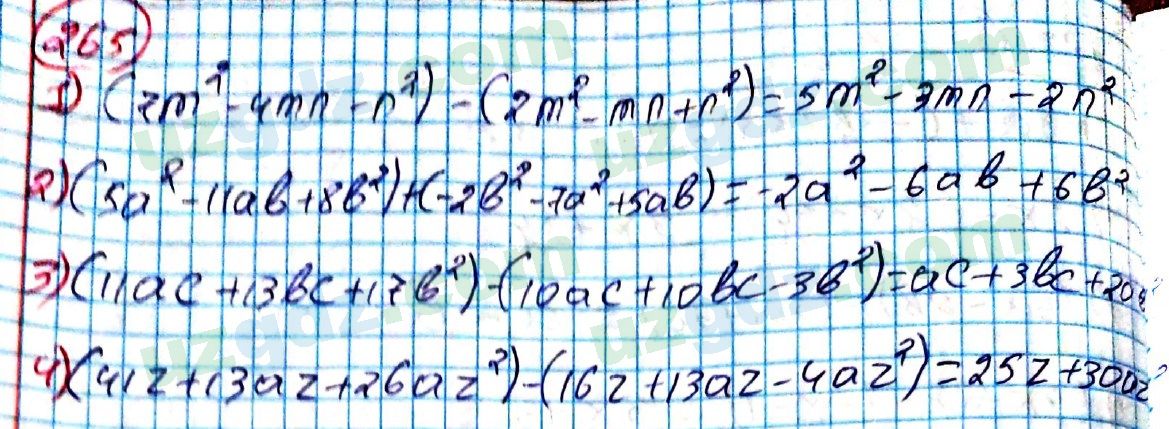 265
1) (7m² - 4mn - n²) - (2m² - mn + n²) = 5m² - 3mn - 2n²
2) (5a² - 11ab + 8b²) + (-2b² - 7a² + 5ab) = -2a² - 6ab + 6b²
3) (11ac + 13bc + 17b²) - (10ac + 10bc - 3b²) = ac + 3bc +
4) (41z + 13az + 26az²) - (16z + 13az - 4az²) = 25z + 30az²
uzgdz.com
uzgdz.com
uzgdz.com
uzgdz.com